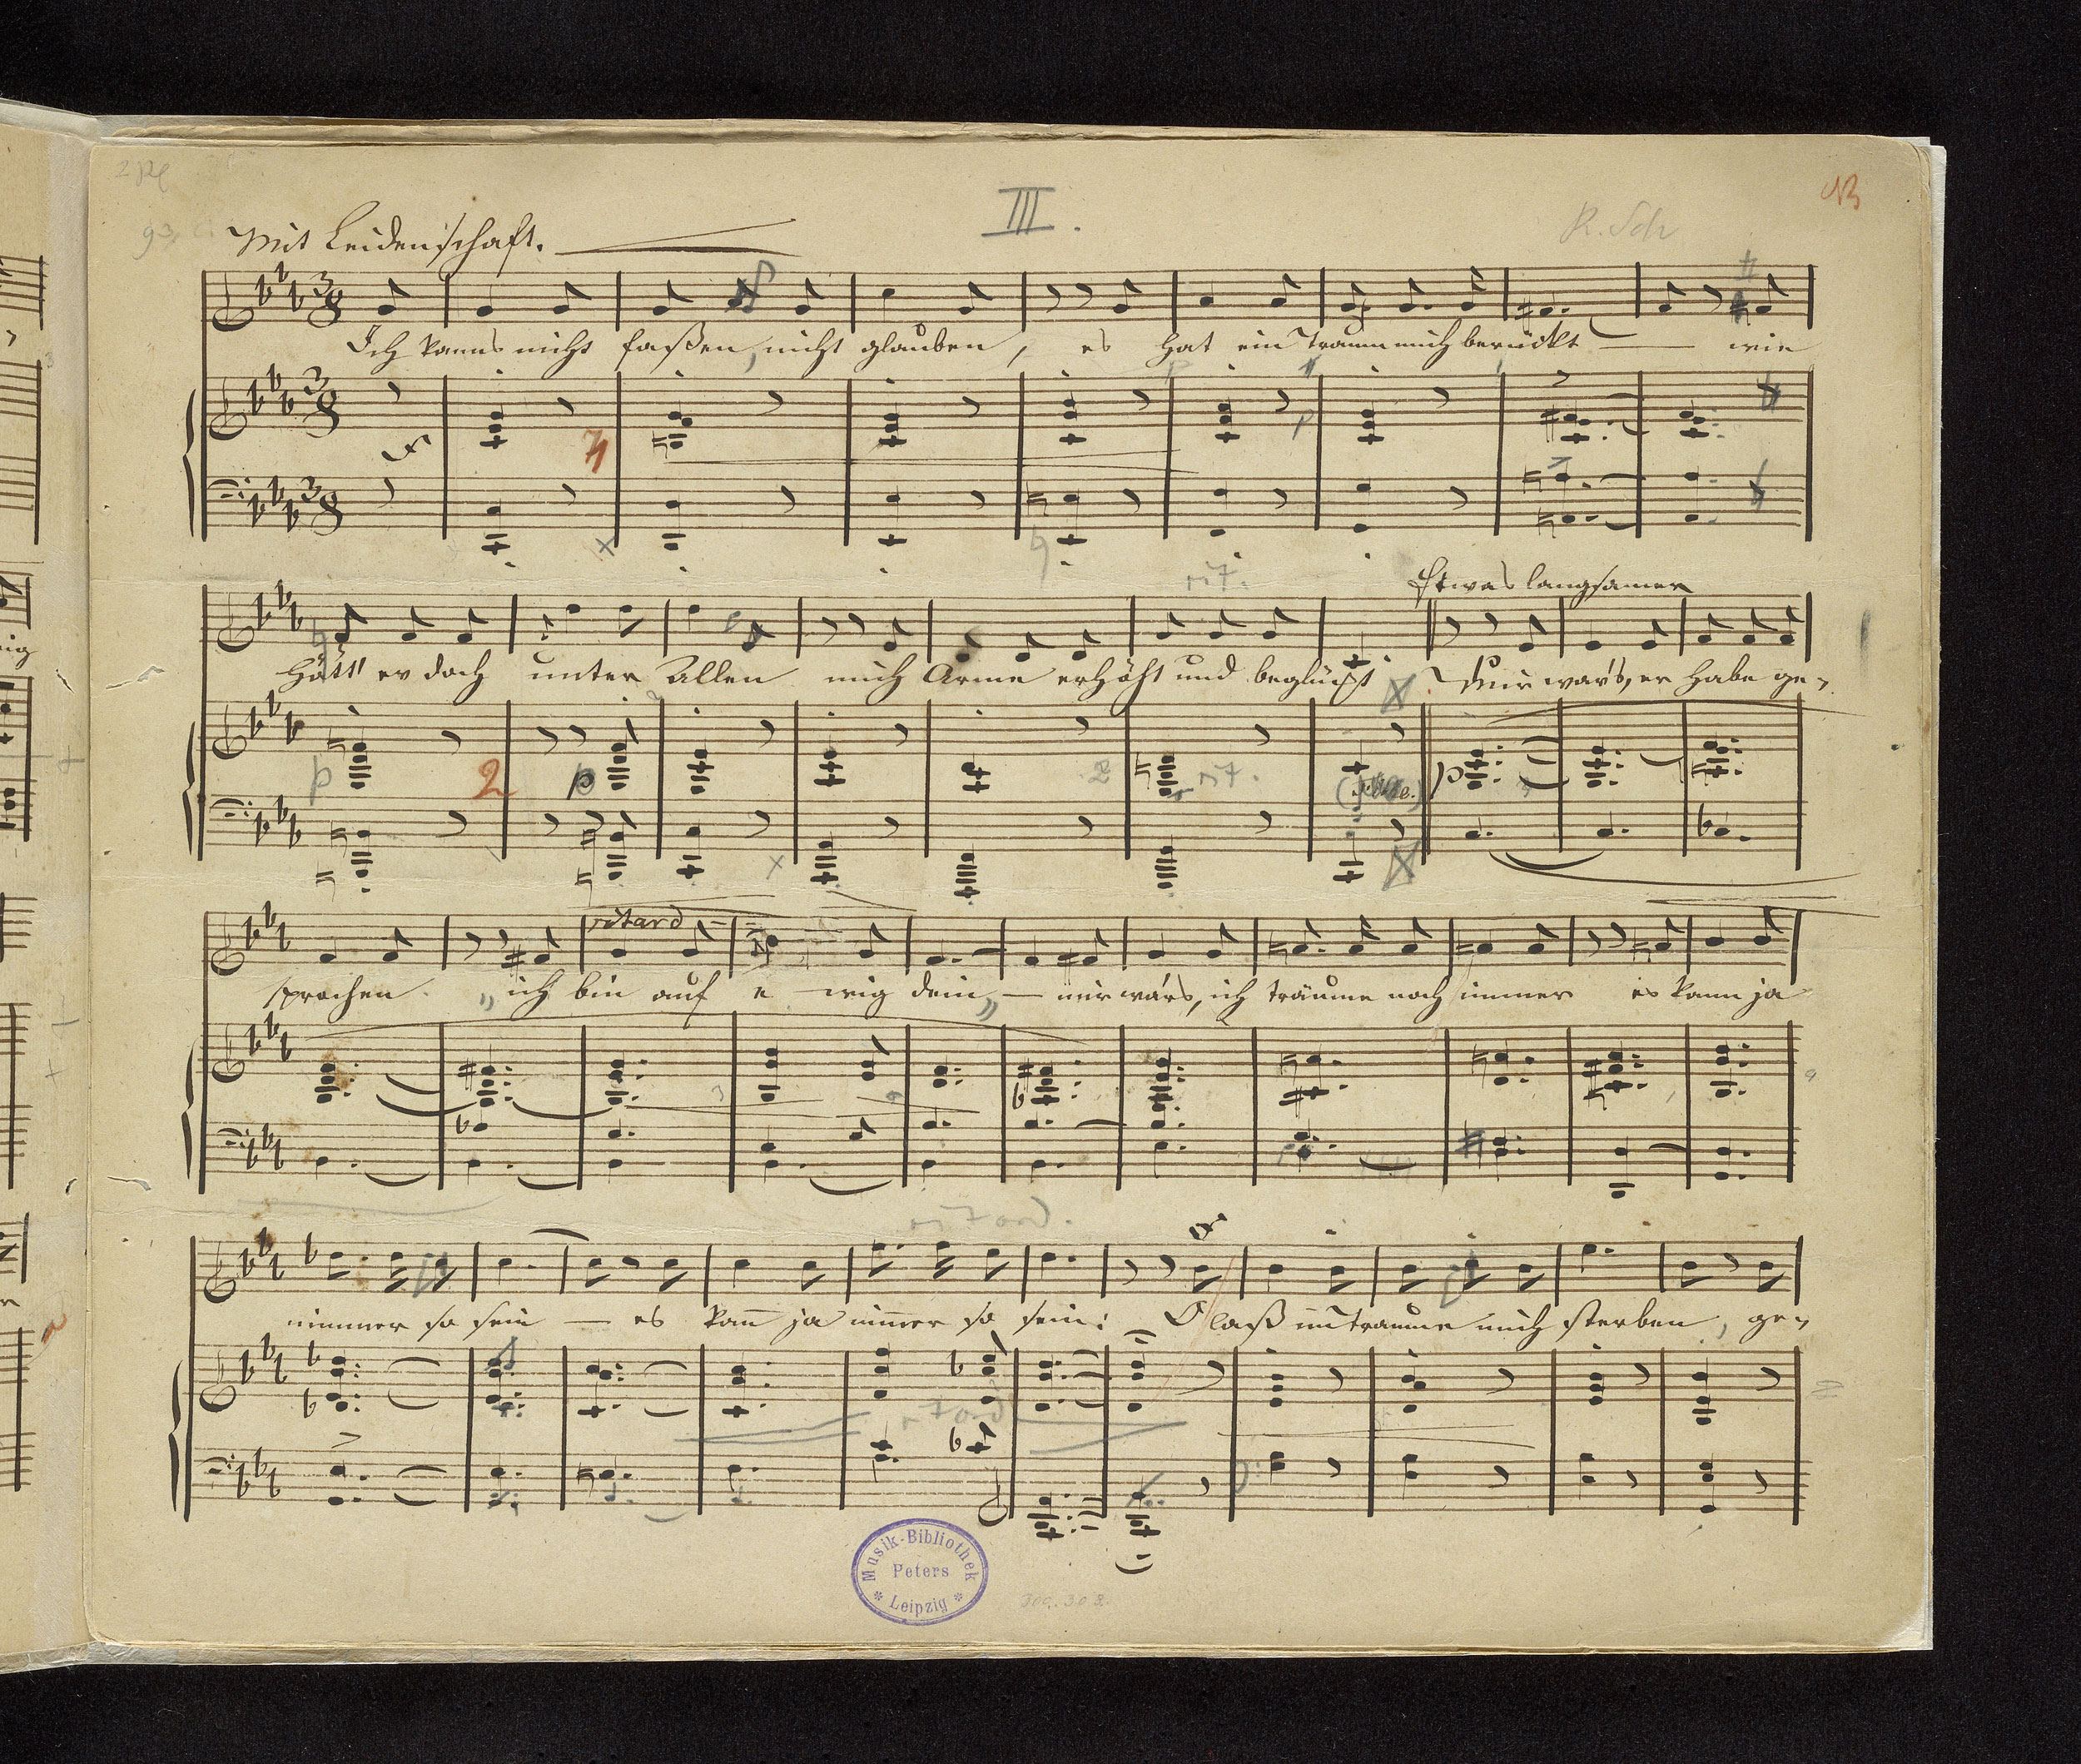 III.
NB
R. Sch
Mit Leidenschaft.
Ich kanns nicht faßen, nicht glauben, es hat ein Traum mich berückt — wie
rit.
Etwas langsamer
hätt' er doch unter Allen mich Arme erhöht und beglückt Mir war's, er habe ge-
p
2
p
rit.
p
ritard
sprochen. „ich bin auf e wig dein„ — mir war's, ich träume noch immer es kann ja
ritard.
nimmer so sein — es kann ja nimmer so sein: O laß im Traume mich sterben, ge-
ritard
Musik-Bibliothek
Peters
Leipzig